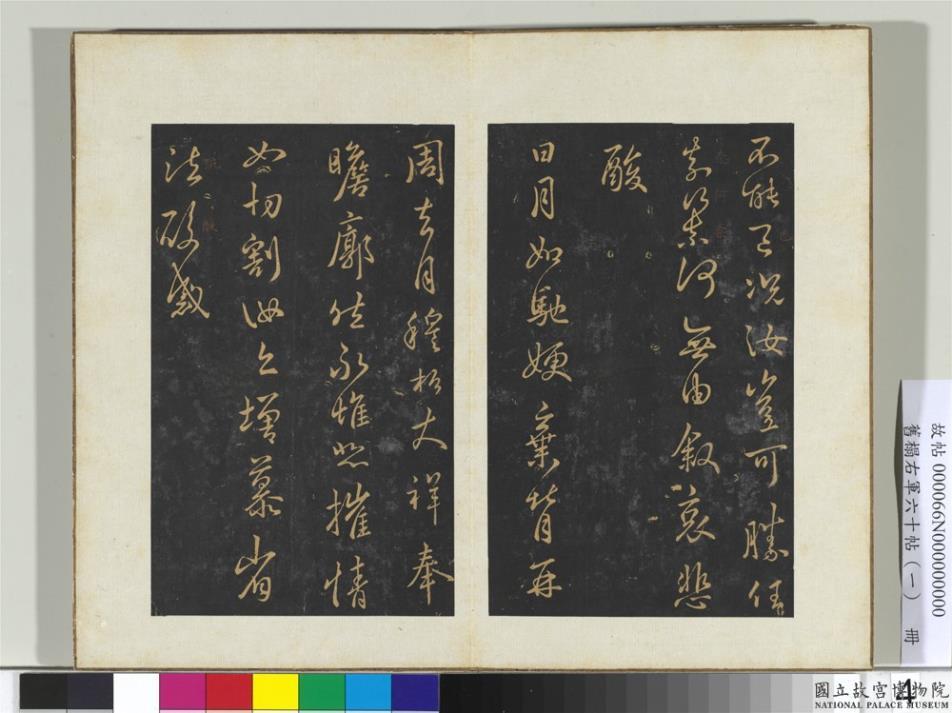 不能已況汝豈可勝任
奈何奈何無由敘哀悲
酸
日月如馳嫂棄背再
周去月穆松大祥奉
瞻廓然永惟悲摧情
如切割汝亦增慕省
疏酸感
故帖 000066N000000000
舊榻右軍六十帖(一) 冊
4
國立故宮博物院
NATIONAL PALACE MUSEUM